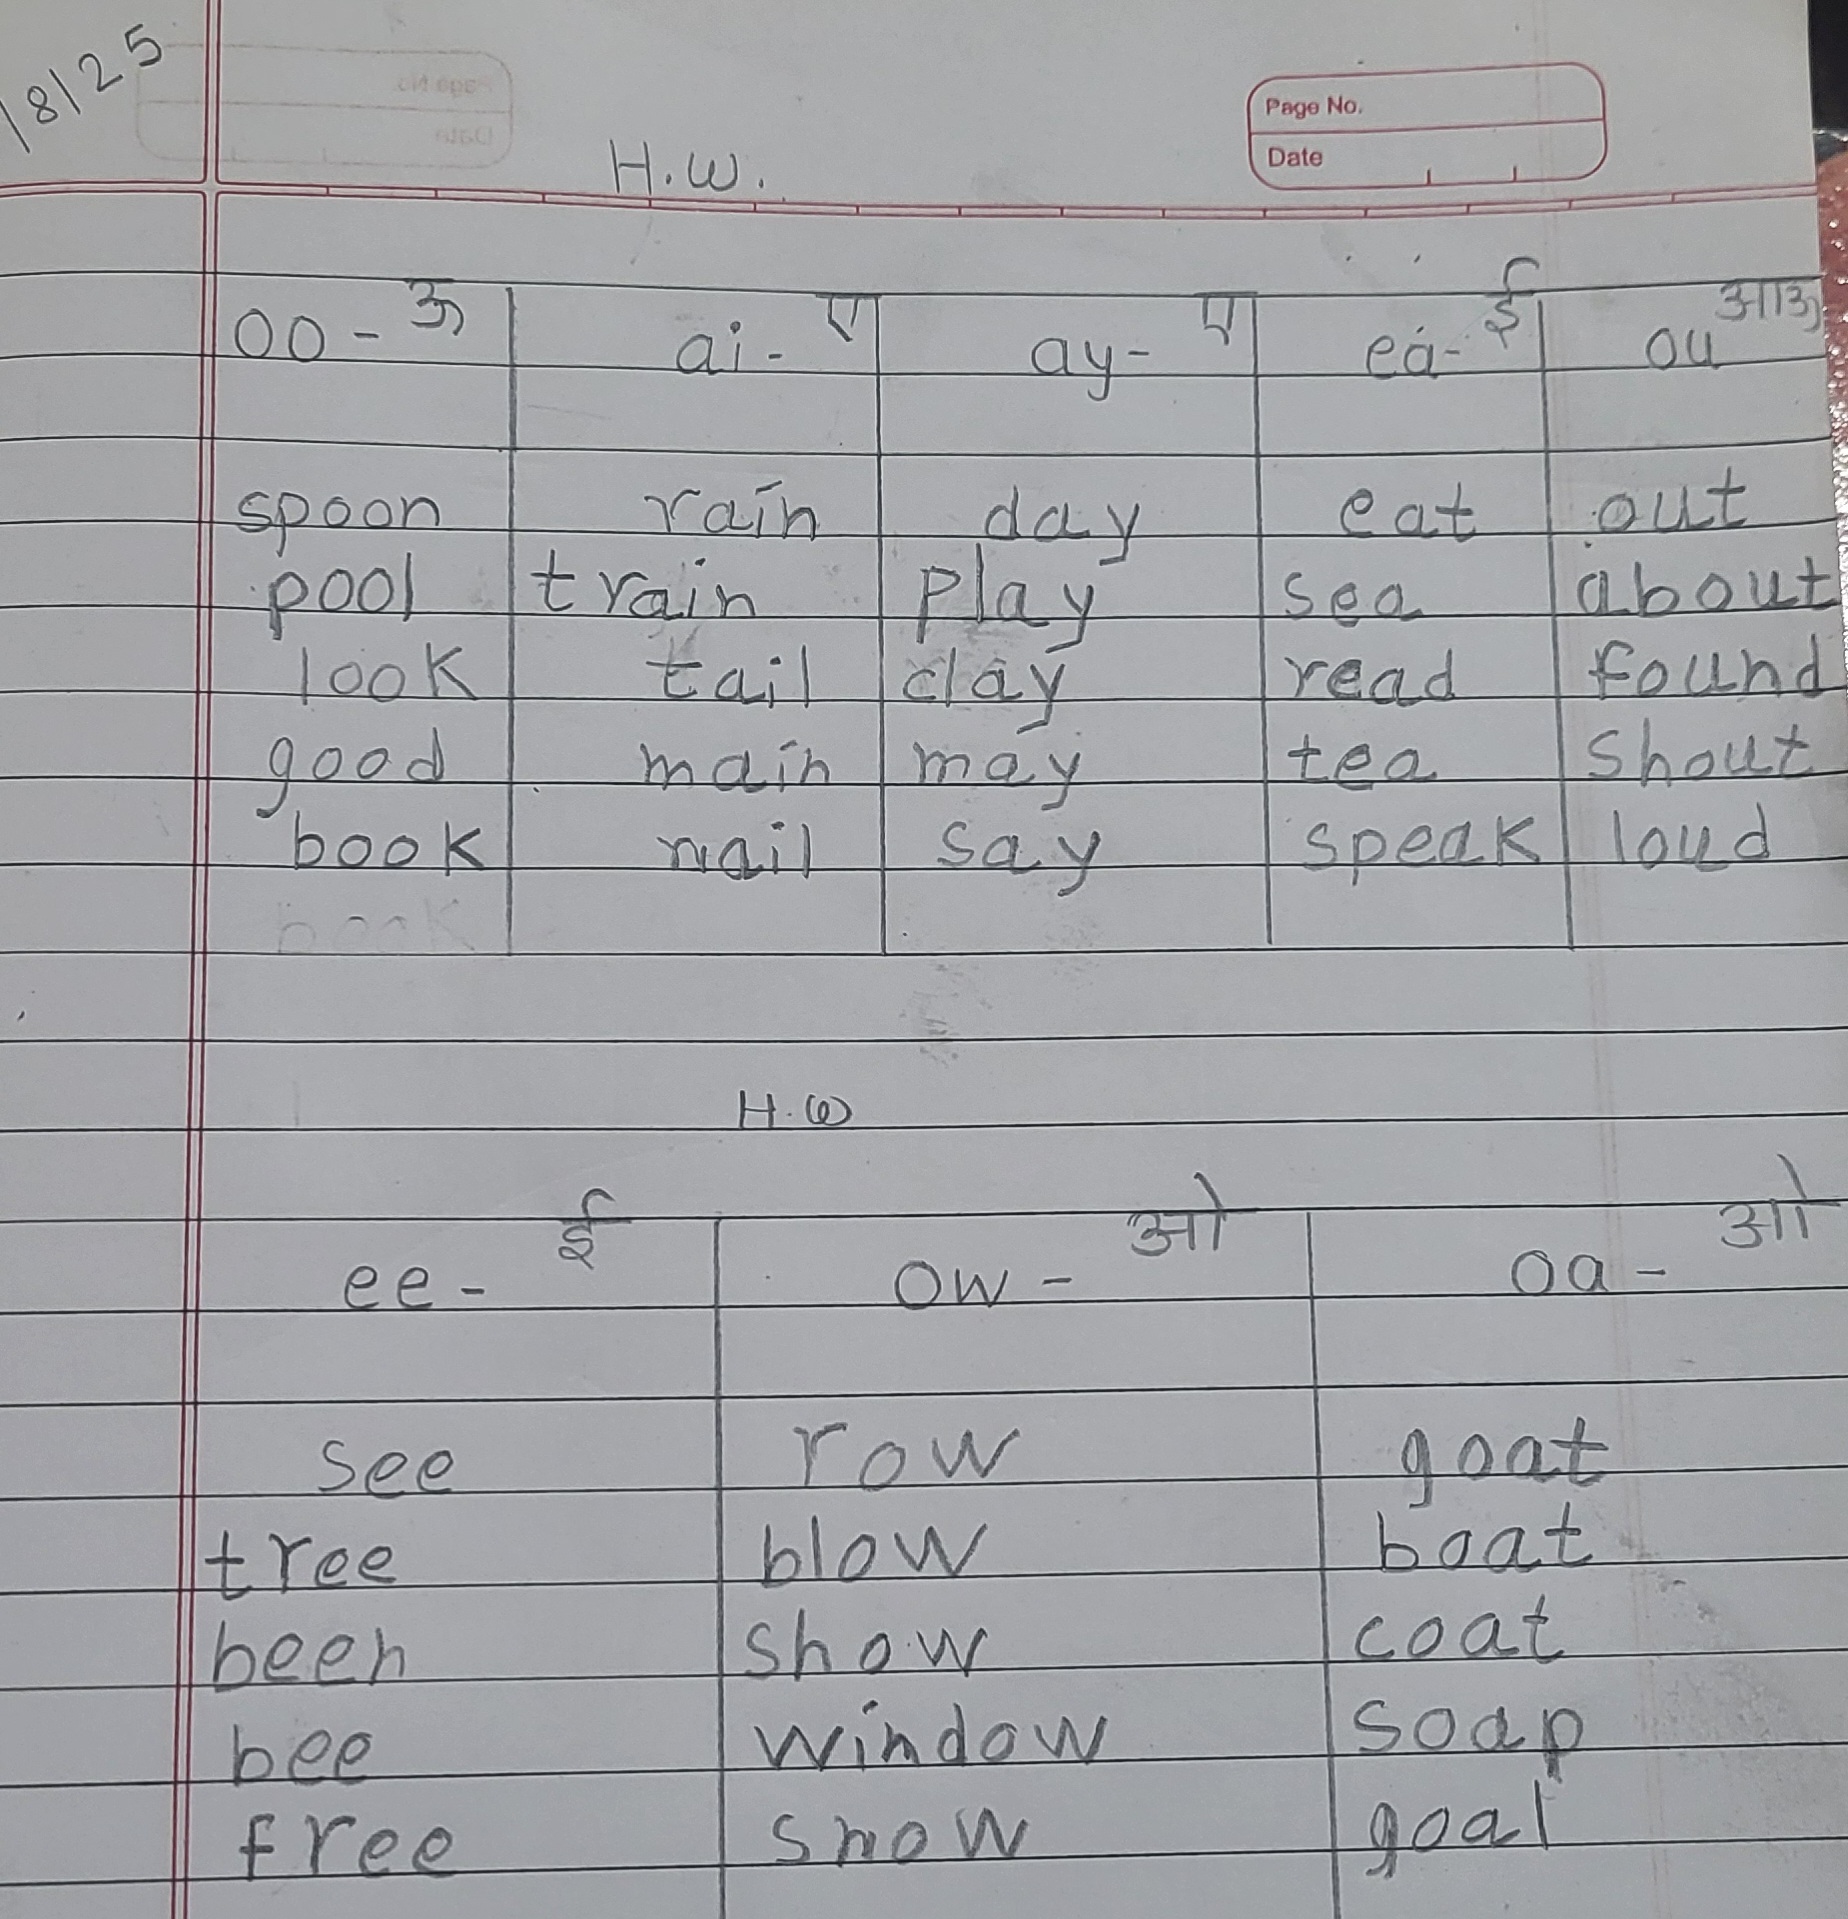 /8/25
Page No.
Date
H.W.
oo - ऊ ai - ए ay - ए ea - ई ou आऊ
spoon rain day eat out
pool train play sea about
look tail clay read found
good main may tea shout
book nail say speak loud
book
H.W
ee - ई ow - ओ oa - ओ
see row goat
tree blow boat
been show coat
bee window soap
free snow goal